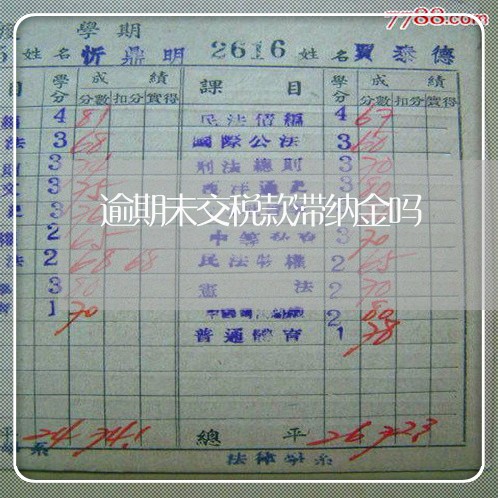 7788.com
學期
姓名 忻鼎明 2616 姓名 賈泰德
目 學分 成績 課目 學分 成績
分數 扣分 實得 分數 扣分 實得
4 81 民法債編 4 67
法 3 68 國際公法 3 60
3 刑法總則 3 70
3 75 西洋通史 3
逾期未交税款滞纳金吗
2 65 3 70
法 2 68 68 民法物權 2 65
3 80 憲法 2 70
1 70 2 80
普通體育 1 78
平 24 74.1 總平 26 72.3
系 法律學系